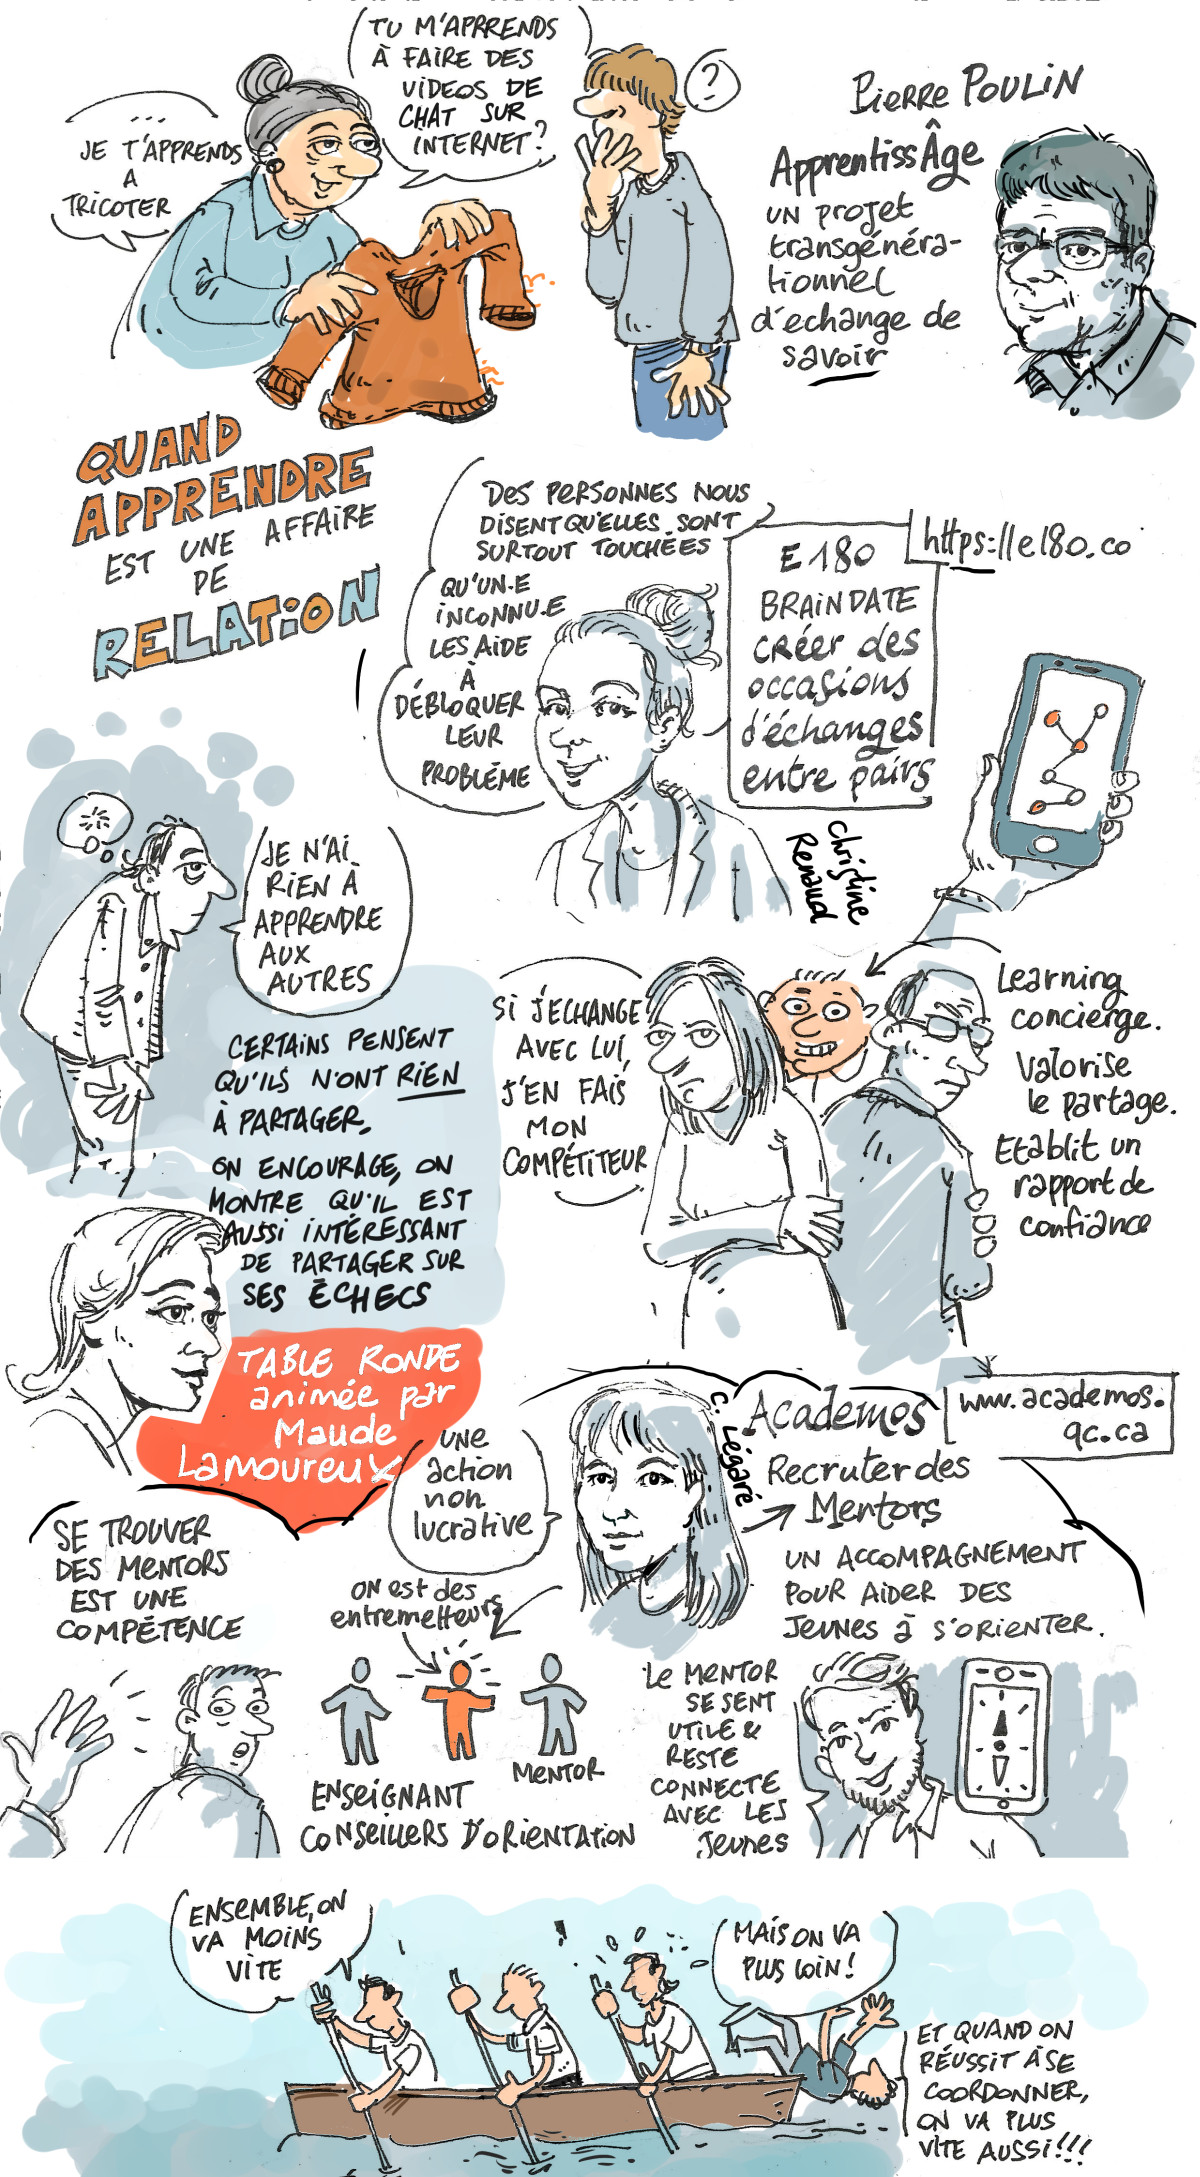 ...
JE T'APPRENDS
A
TRICOTER
TU M'APPRENDS
À FAIRE DES
VIDEOS DE
CHAT SUR
INTERNET?
?
Pierre Poulin
ApprentissÂge
un projet
transgénéra-
tionnel
d'echange de
savoir
QUAND
APPRENDRE
EST UNE AFFAIRE
DE
RELATION
DES PERSONNES NOUS
DISENT QU'ELLES SONT
SURTOUT TOUCHÉES
QU'UN·E
INCONNU·E
LES AIDE
À
DÉBLOQUER
LEUR
PROBLÈME
E180
BRAINDATE
créer des
occasions
d'échanges
entre pairs
https://e180.co
Christine
Renaud
JE N'AI
RIEN À
APPRENDRE
AUX
AUTRES
CERTAINS PENSENT
QU'ILS N'ONT RIEN
À PARTAGER,
ON ENCOURAGE, ON
MONTRE QU'IL EST
AUSSI INTÉRESSANT
DE PARTAGER SUR
SES ÉCHECS
SI J'ECHANGE
AVEC LUI,
J'EN FAIS
MON
COMPÉTITEUR
Learning
concierge.
Valorise
le partage.
Etablit un
rapport de
confiance
TABLE RONDE
animée par
Maude
Lamoureux
une
action
non
lucrative
C. Légaré
Academos
www.academos.
qc.ca
Recruter des
Mentors
UN ACCOMPAGNEMENT
POUR AIDER DES
JEUNES à S'ORIENTER.
SE TROUVER
DES MENTORS
EST UNE
COMPÉTENCE
ON est des
entremetteurs
MENTOR
ENSEIGNANT
CONSEILLERS D'ORIENTATION
LE MENTOR
SE SENT
UTILE &
RESTE
CONNECTE
AVEC LES
JEUNES
ENSEMBLE, ON
VA MOINS
VITE
!
MAIS ON VA
PLUS LOIN!
ET QUAND ON
RÉUSSIT À SE
COORDONNER,
ON VA PLUS
VITE AUSSI!!!